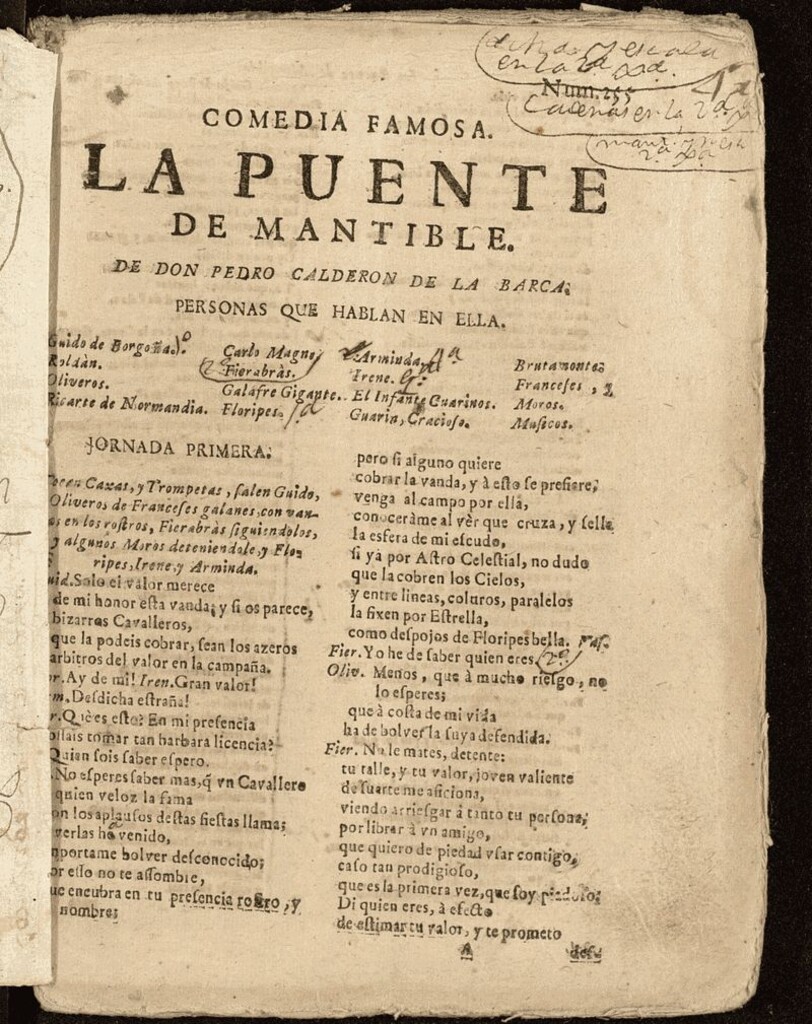 en la 2ª
Num. 255
Cadenas en la 2ª
2ª
COMEDIA FAMOSA.
LA PUENTE
DE MANTIBLE.
DE DON PEDRO CALDERON DE LA BARCA.
PERSONAS QUE HABLAN EN ELLA.
Guido de Borgoña. Carlo Magno Arminda. Brutamonte.
Roldàn. Fierabràs. Irene. Franceses,
Oliveros. Galafre Gigante. El Infante Guarinos. Moros.
Ricarte de Normandia. Floripes. Guarin, Gracioso. Musicos.
JORNADA PRIMERA.
Tocan Caxas, y Trompetas, ſalen Guido,
Oliveros de Franceſes galanes, con van-
as en los roſtros, Fierabràs ſiguiendolos,
y algunos Moros deteniendole, y Flo-
ripes, Irene, y Arminda.
uid. Solo el valor merece
de mi honor eſta vanda; y ſi os parece,
bizarros Cavalleros,
que la podeis cobrar, ſean los azeros
arbitros del valor en la campaña.
r. Ay de mi! Iren. Gran valor!
m. Deſdicha eſtraña!
r. Què es eſto? En mi preſencia
oſſais tomar tan barbara licencia?
Quien ſois ſaber eſpero.
No eſperes ſaber mas, q̃ vn Cavallero
quien veloz la fama
on los aplauſos deſtas fieſtas llama;
verlas ha venido,
mportame bolver deſconocido;
or eſſo no te aſſombre,
ue encubra en tu preſencia roſtro, y
nombre;
pero ſi alguno quiere
cobrar la vanda, y à eſto ſe prefiere,
venga al campo por ella,
conoceràme al vèr que cruza, y ſella
la esfera de mi eſcudo,
ſi yà por Aſtro Celeſtial, no dudo
que la cobren los Cielos,
y entre lineas, coluros, paralelos
la fixen por Eſtrella,
como deſpojos de Floripes bella. Vaſ.
Fier. Yo he de ſaber quien eres.
Oliv. Menos, que à mucho rieſgo, no
lo eſperes;
que à coſta de mi vida
ha de bolver la ſuya defendida.
Fier. No le mates, detente:
tu talle, y tu valor, joven valiente
de ſuerte me aficiona,
viendo arrieſgar à tanto tu perſona;
por librar à vn amigo,
que quiero de piedad vſar contigo,
caſo tan prodigioſo,
que es la primera vez, que ſoy piadoſo;
Di quien eres, à efecto
de eſtimar tu valor, y te prometo
A deſ-